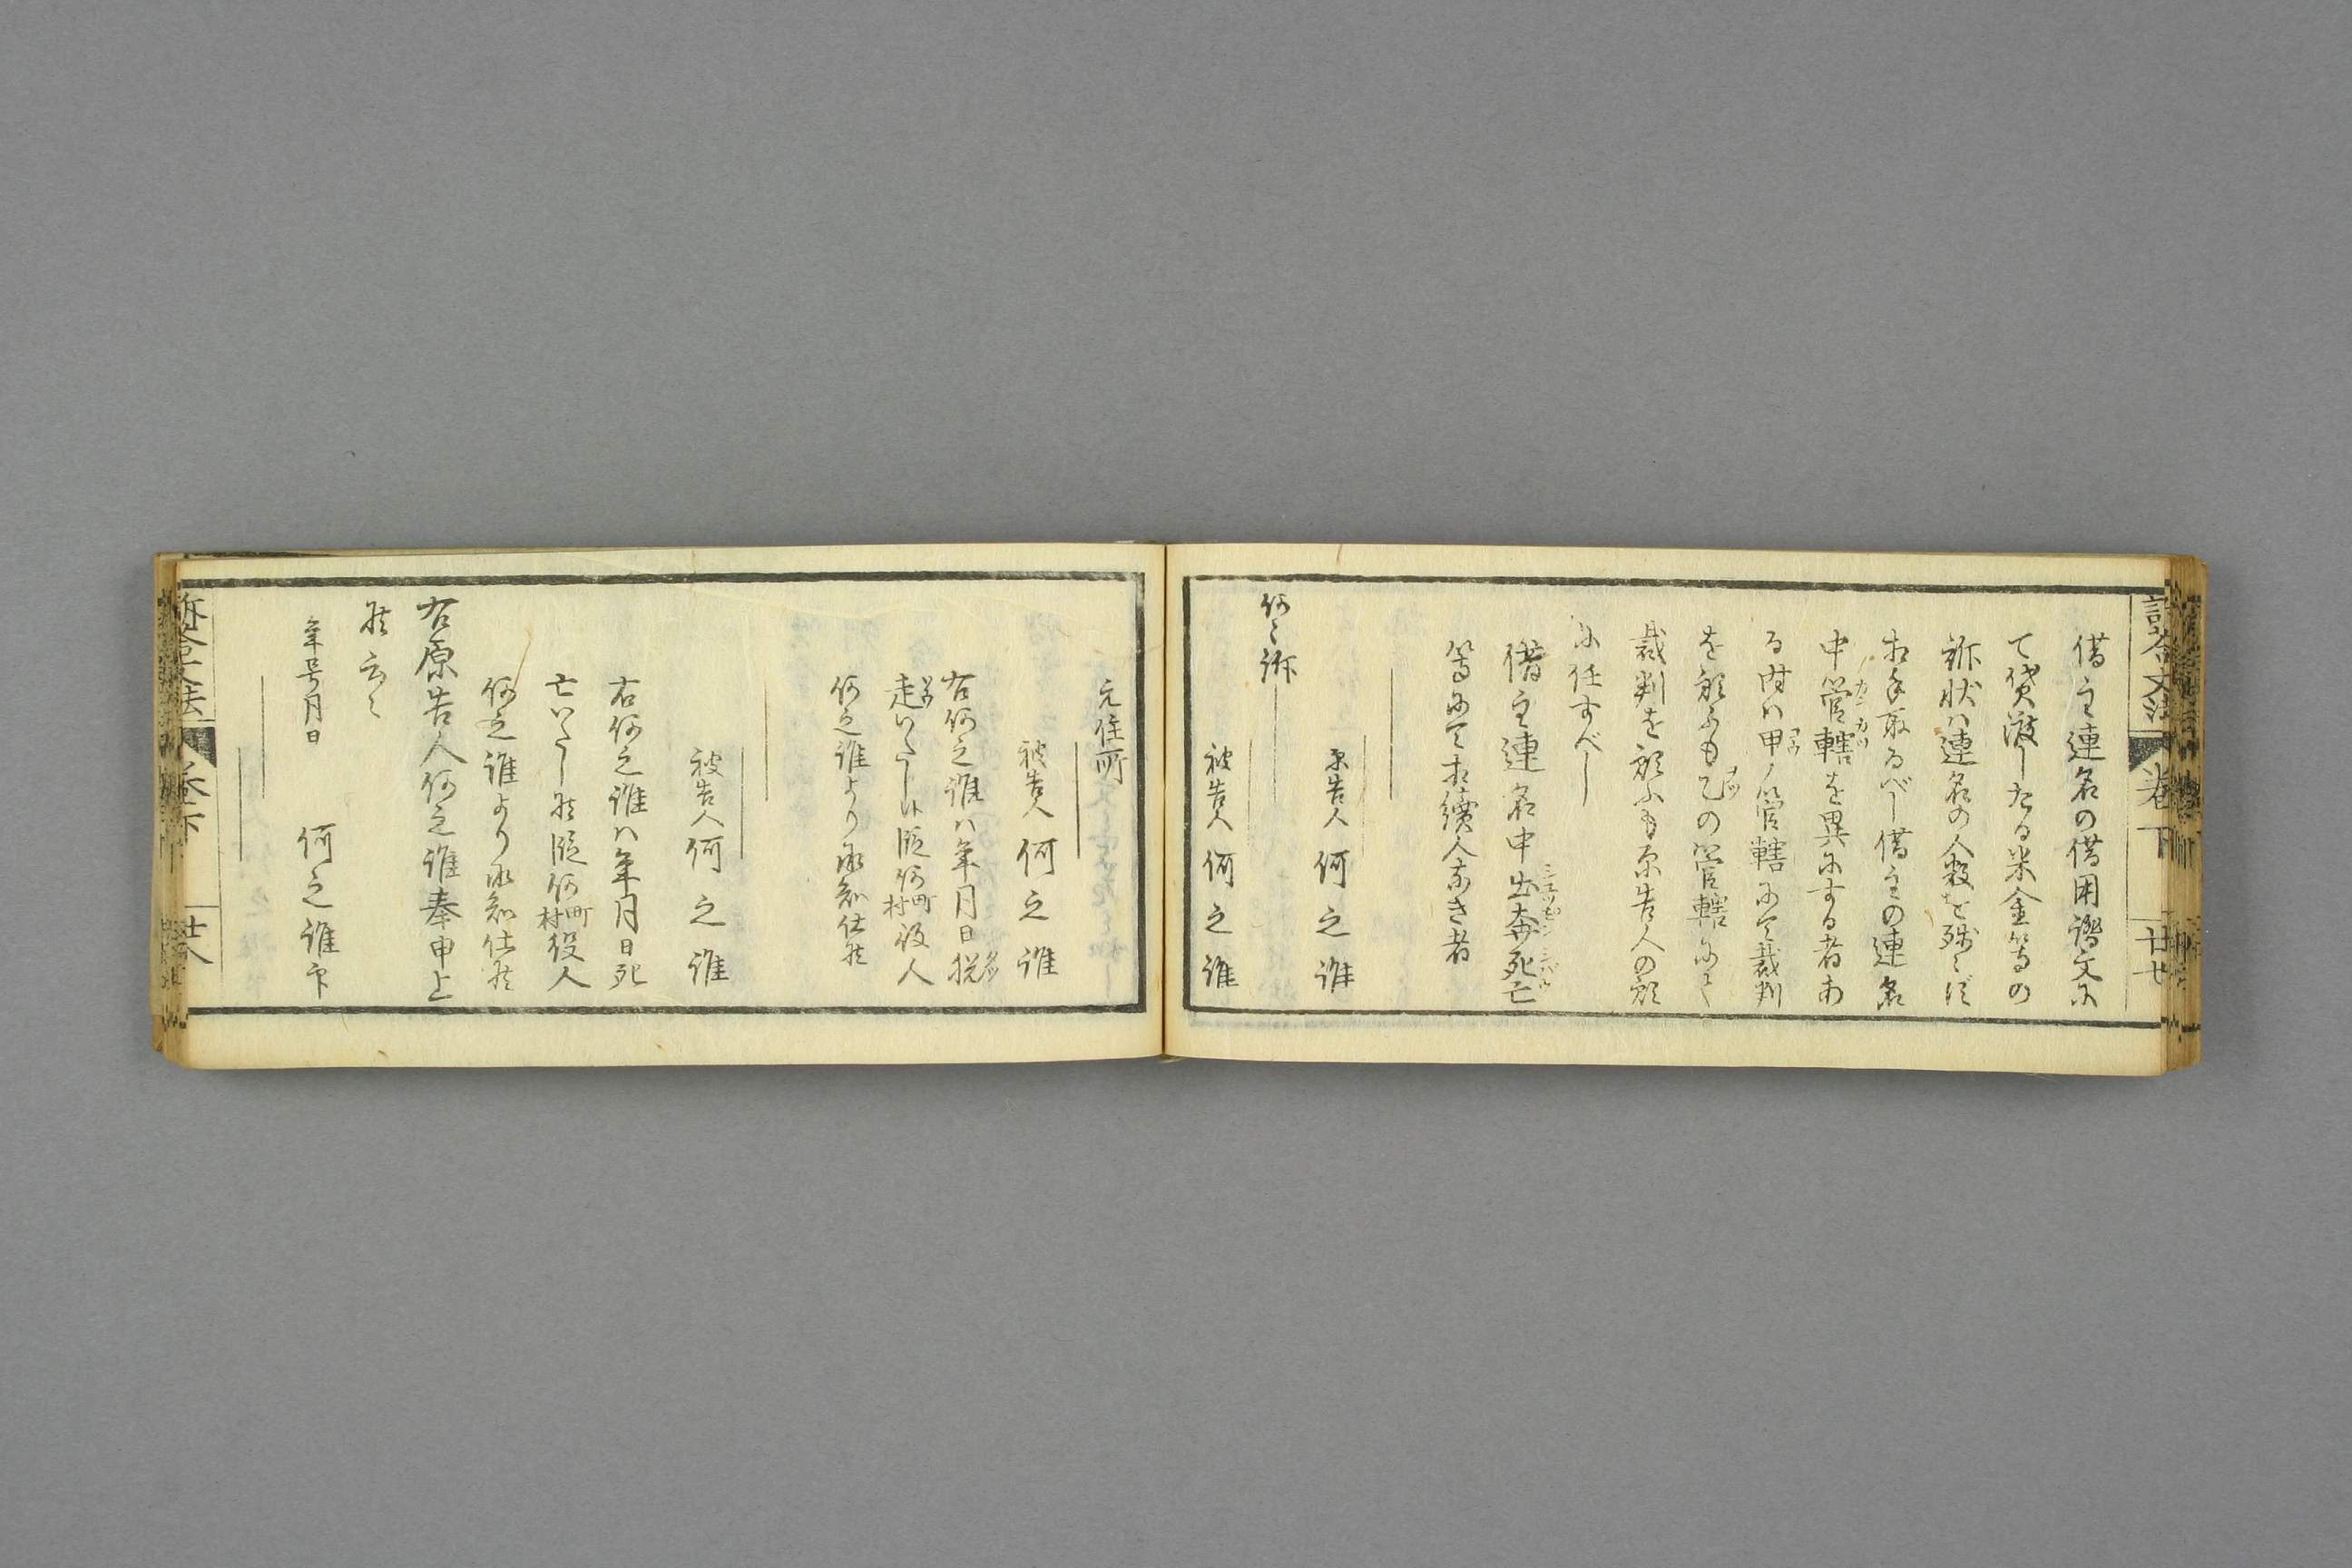 訴答文法 巻下 廿七
借主連名の借用證文に
て貸渡したる米金等の
訴状ハ連名の人数を残らず
相手取るべし借主の連名
中管轄を異にする者あ
る時ハ甲ノ管轄にて裁判
を願ふも乙の管轄にて
裁判を願ふも原告人の願
に任すべし
借主連名中出奔死亡
等にて相續人なき者
原告人 何之誰
何々訴
被告人 何之誰
元住所
被告人 何之誰
右何之誰ハ年月日脱
走いたし候段何町村役人
何之誰より承知仕候
被告人 何之誰
右何之誰ハ年月日死
亡いたし候段何町村役人
何之誰より承知仕候
右原告人何之誰奉申上
候云々
年号月日 何之誰印
訴答文法 巻下 廿八